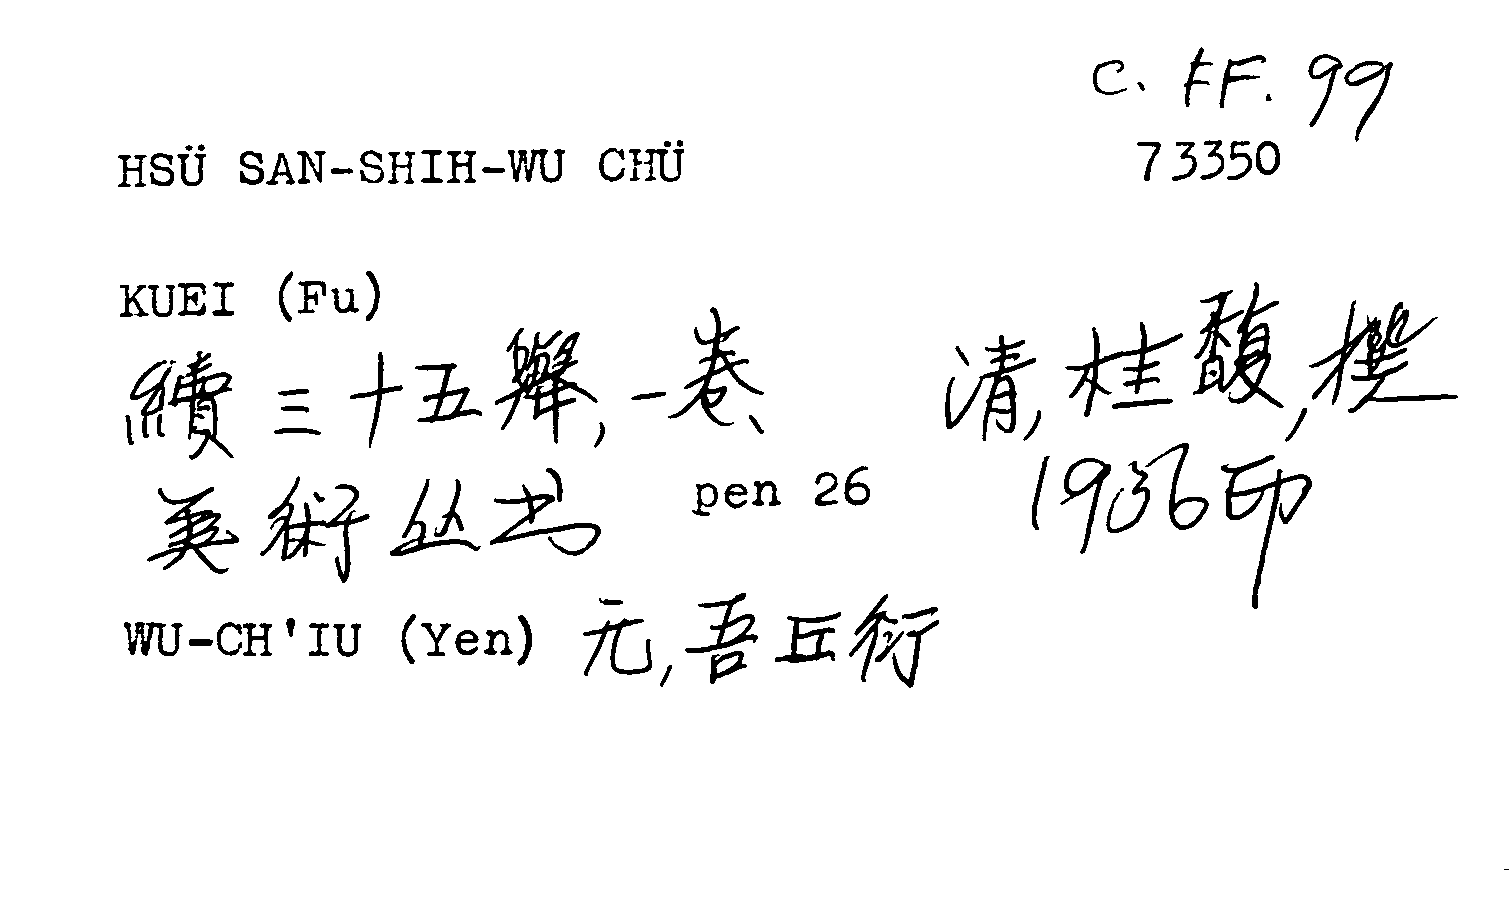 C. FF. 99
HSÜ SAN-SHIH-WU CHÜ 73350
KUEI (Fu)
續三十五舉,一卷、 清,桂馥,撰
美術丛书 pen 26 1936印
WU-CH'IU (Yen) 元,吾丘衍